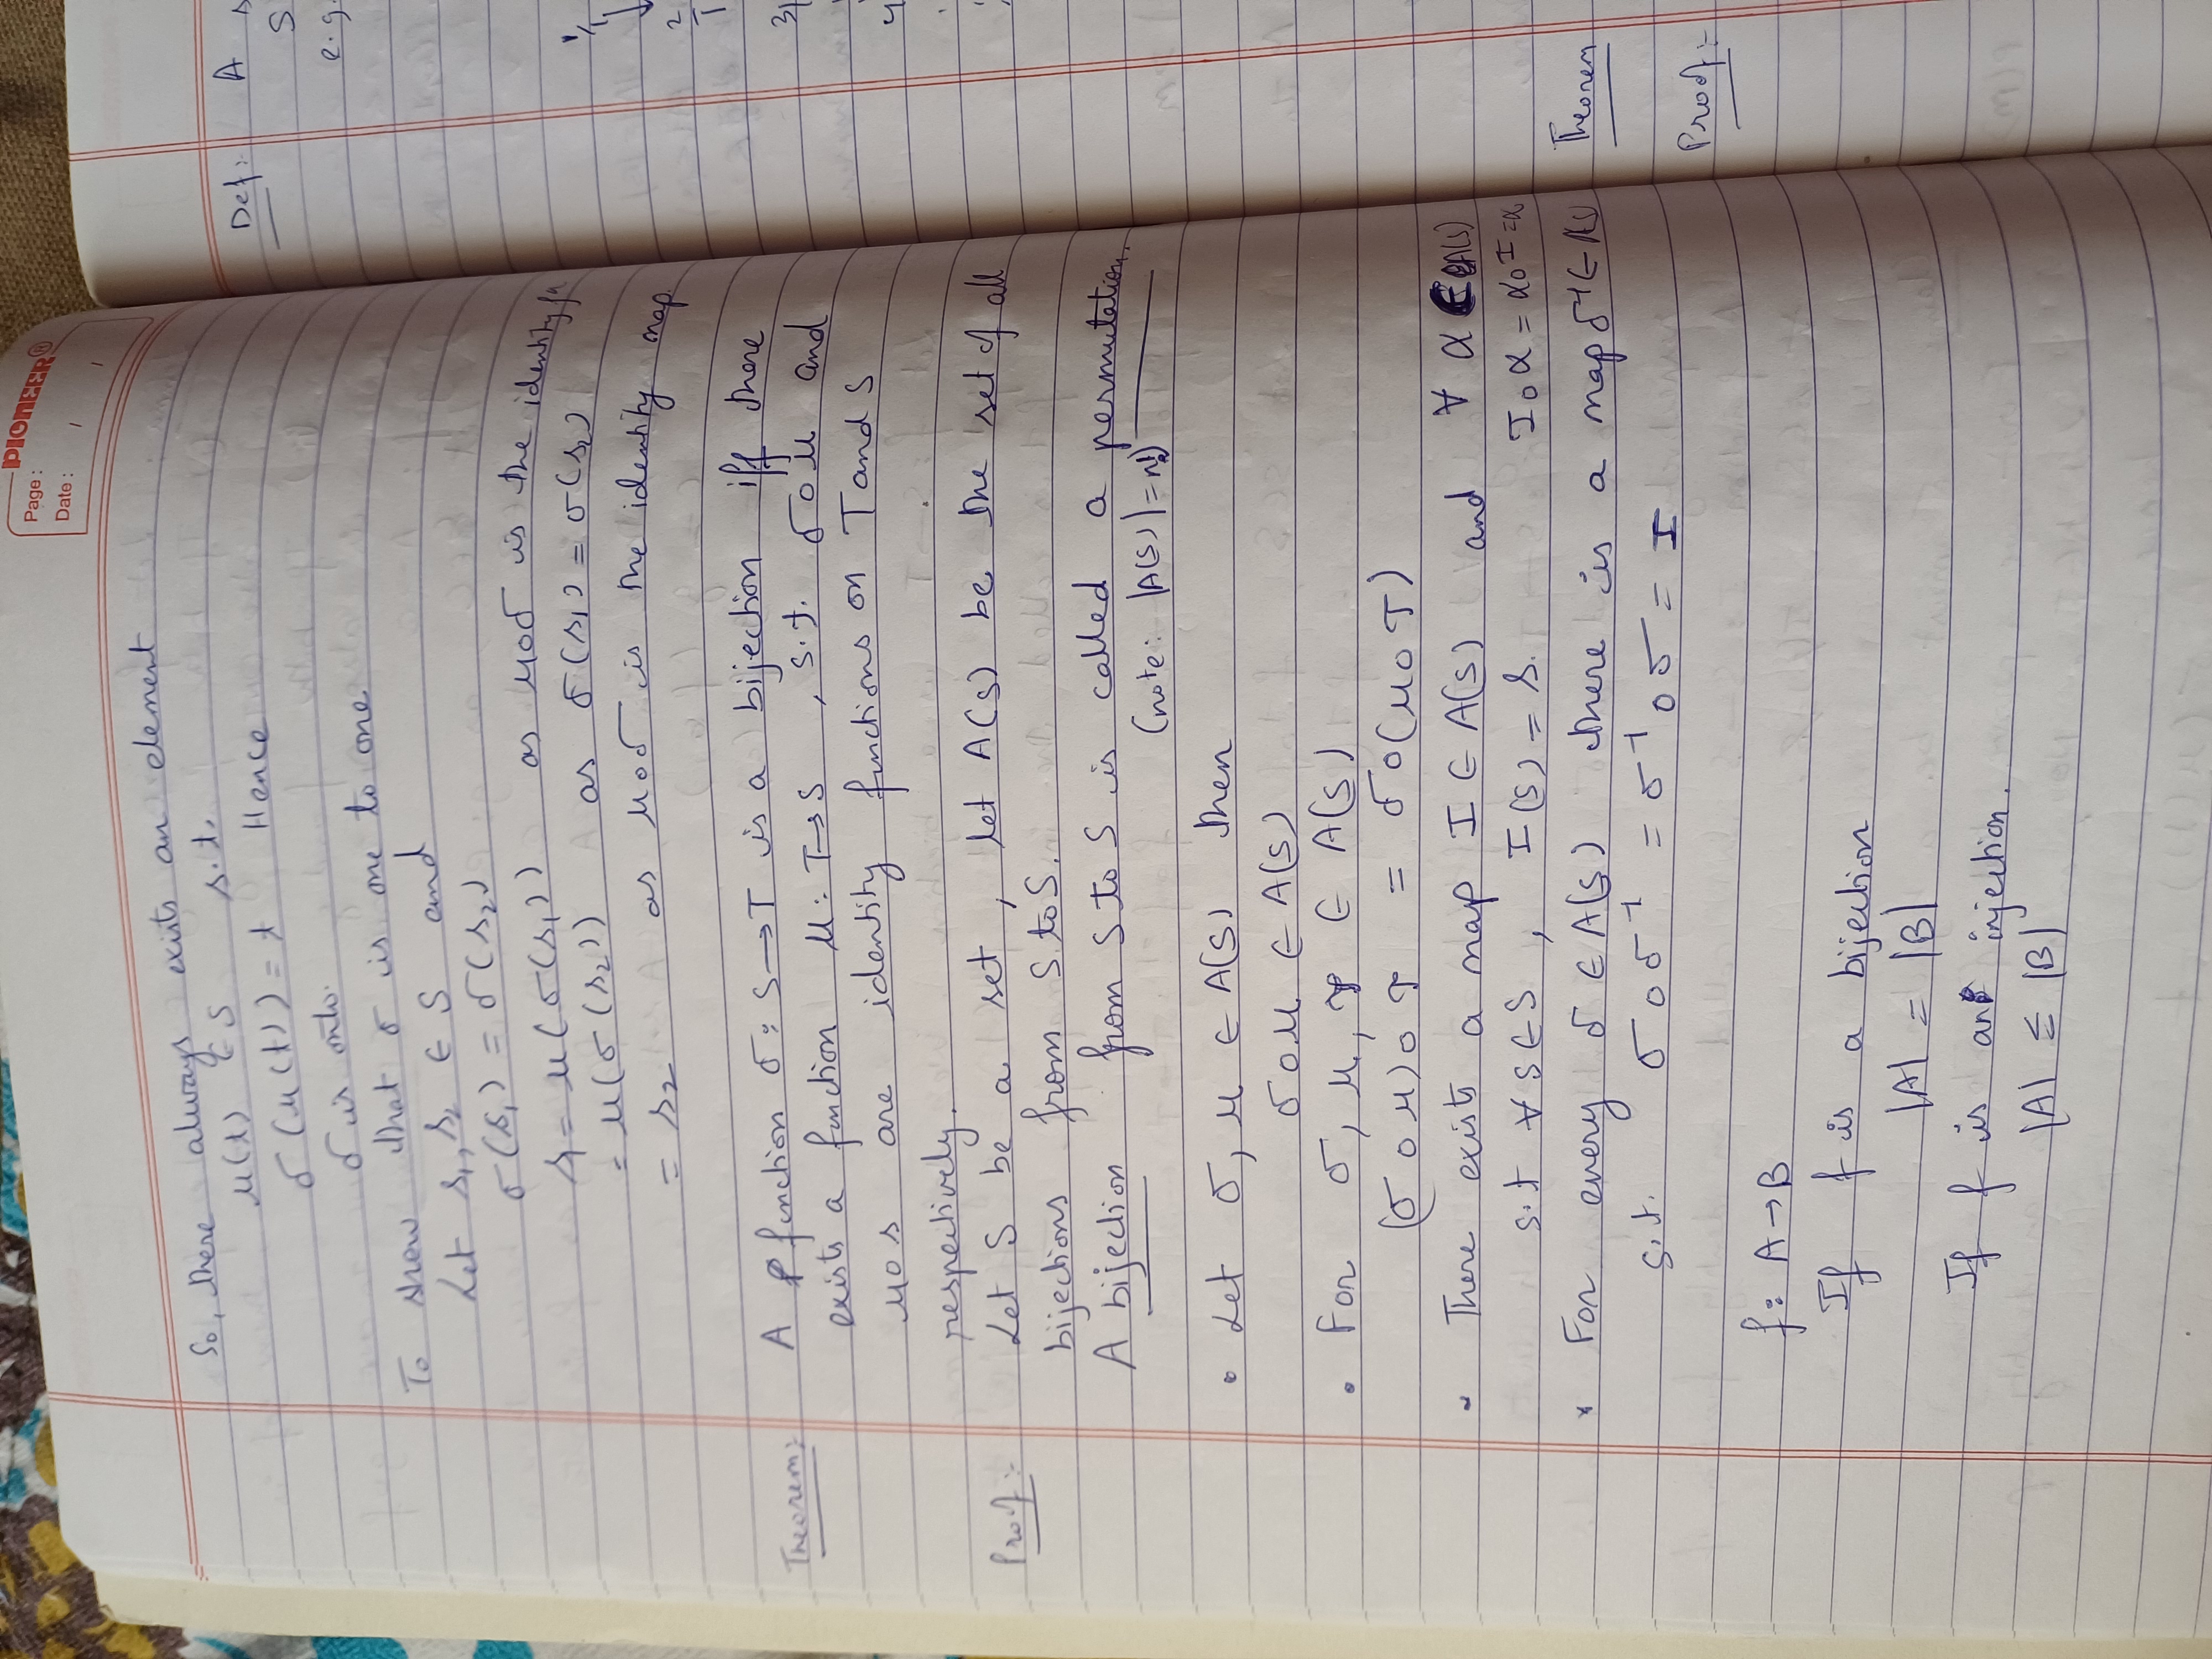 PIONEER®
Page :
Date : / /
So, there always exists an element
μ(t) ∈ S s.t.
σ(μ(t)) = t Hence
σ is onto.
To show that σ is one to one
Let s₁, s₂ ∈ S and
σ(s₁) = σ(s₂)
s₁ = μ(σ(s₁)) as μoσ is the identity fn
= μ(σ(s₂)) as σ(s₁) = σ(s₂)
= s₂ as μoσ is the identity map
Theorem:- A function σ: S→T is a bijection iff there
exists a function μ: T→S, s.t. σoμ and
μos are identity functions on T and S
respectively.
Proof:- Let S be a set, let A(S) be the set of all
bijections from S to S.
A bijection from S to S is called a permutation.
(note: |A(S)| = n!)
• Let σ, μ ∈ A(S) then
σoμ ∈ A(S)
• For σ, μ, τ ∈ A(S)
(σoμ)oτ = σo(μoτ)
• There exists a map I ∈ A(S) and ∀ α ∈ A(S)
s.t ∀ s∈S, I(s) = s. Ioα = αoI = α
• For every σ ∈ A(S) there is a map σ⁻¹ ∈ A(S)
s.t. σoσ⁻¹ = σ⁻¹oσ = I
f: A→B
If f is a bijection
|A| = |B|
If f is an injection.
|A| ≤ |B|
Def:- A
S
e.g.
Theorem
Proof:-